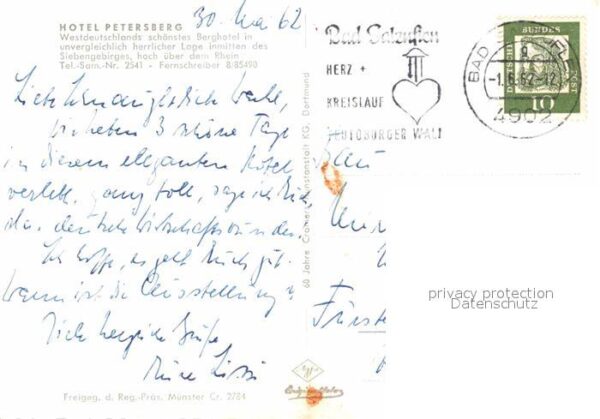 30. Mai 62
HOTEL PETERSBERG
Westdeutschlands schönstes Berghotel in
unvergleichlich herrlicher Lage inmitten des
Siebengebirges, hoch über dem Rhein
Tel.-Sam.-Nr. 2541 - Fernschreiber 8/85490
Liebe
wir haben 3 schöne Tage
in diesem eleganten Hotel
verlebt, ganz toll, sage ich Dir,
das deutsche Wirtschaftswunder.
Ich hoffe, es geht Euch gut.
Wann ist die Ausstellung?
Dich herzliche Grüße
Freigeg. d. Reg.-Präs. Münster Cr. 2784
60 Jahre Cramers Kunstanstalt KG, Dortmund
Bad Salzuflen
HERZ +
KREISLAUF
TEUTOBURGER WALD
BAD
-1.6.62-12
4902
DEUTSCHE
10
Frau
Fürste
privacy protection
Datenschutz